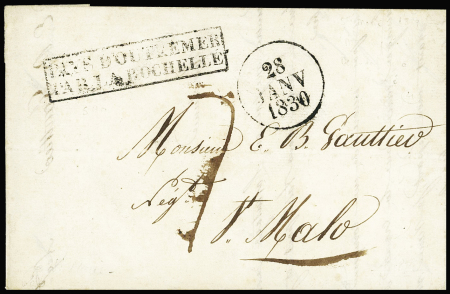 PAYS D'OUTREMER
PAR LA ROCHELLE
28
JANV
1830
7
Monsieur E. B. Gaultier
Négt.
St. Malo